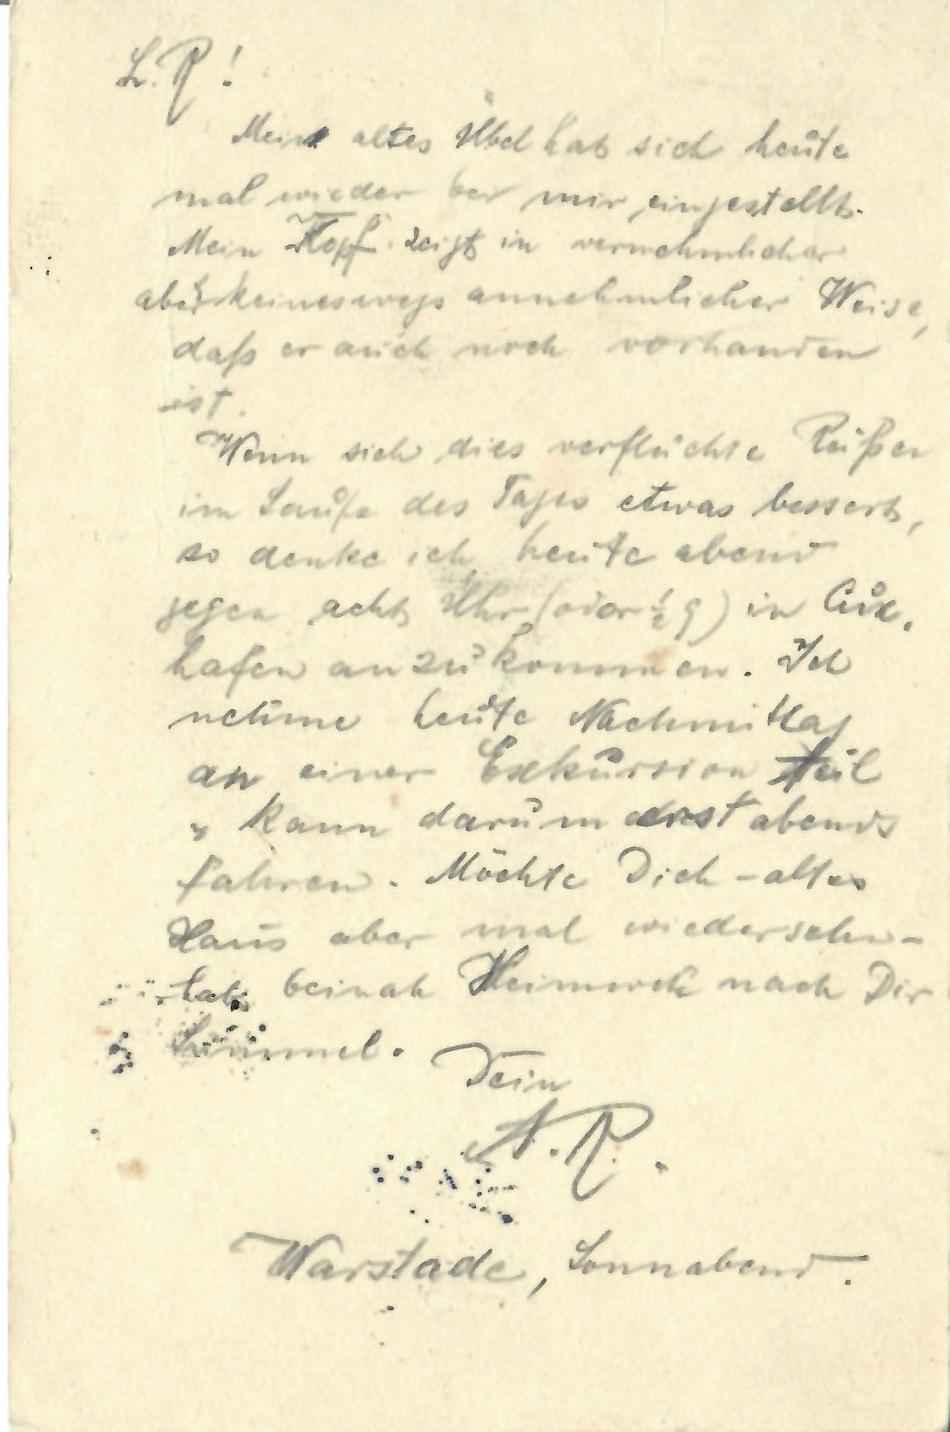 L. R!
Mein altes Übel hat sich heute
mal wieder bei mir eingestellt.
Mein Kopf zeigt in vernehmlicher
aber keineswegs annehmlicher Weise,
daß er auch noch vorhanden
ist.
Wenn sich dies verfluchte Reißen
im Laufe des Tages etwas bessert,
so denke ich heute abend
gegen acht Uhr (oder ½ 9) in Cux.
hafen anzukommen. Ich
nehme heute Nachmittag
an einer Exkursion teil
u kann darum erst abends
fahren. Möchte Dich – altes
Haus aber mal wiedersehn –
hab beinah Heimweh nach Dir
Lümmel.
Dein
A. R.
Warstade, Sonnabend.